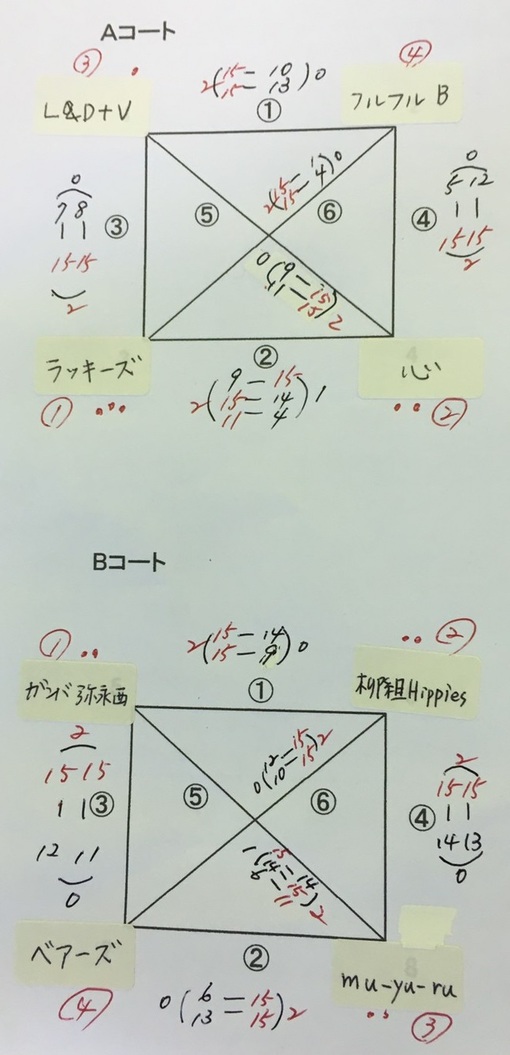 Aコート
③ 2(15-10 15-13)0 ④
L&D+V ① フルフル B
2(15- 15-4)0
0 0
7 8 5 12
③ ⑤ ⑥ ④
15 15 15 15
2 2
0(9-15 11-15)2
ラッキーズ ② 心
① 2(9-15 15-14 11-4)1 ②
Bコート
① 2(15-14 15-9)0 ②
ガンバ弥永西 ① Hippies
0(12-15 10-15)2
2 2
15 15 15 15
③ ⑤ ⑥ ④
12 11 14 13
0 0
1(15 14-14 6-15 11)2
ベアーズ ② mu-yu-ru
④ 0(6-15 13-15)2 ③